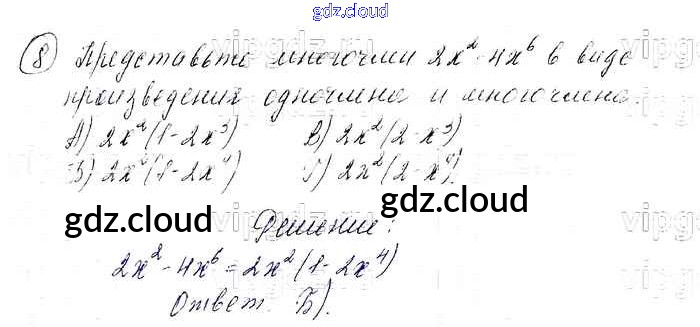 gdz.cloud
8) Представьте многочлен 2x² - 4x⁶ в виде
произведения одночлена и многочлена.
А) 2x²(1-2x³) В) 2x²(2-x³)
Б) 2x²(1-2x⁴) Г) 2x²(2-x⁴).
gdz.cloud gdz.cloud
Решение:
2x² - 4x⁶ = 2x²(1-2x⁴)
Ответ. Б).